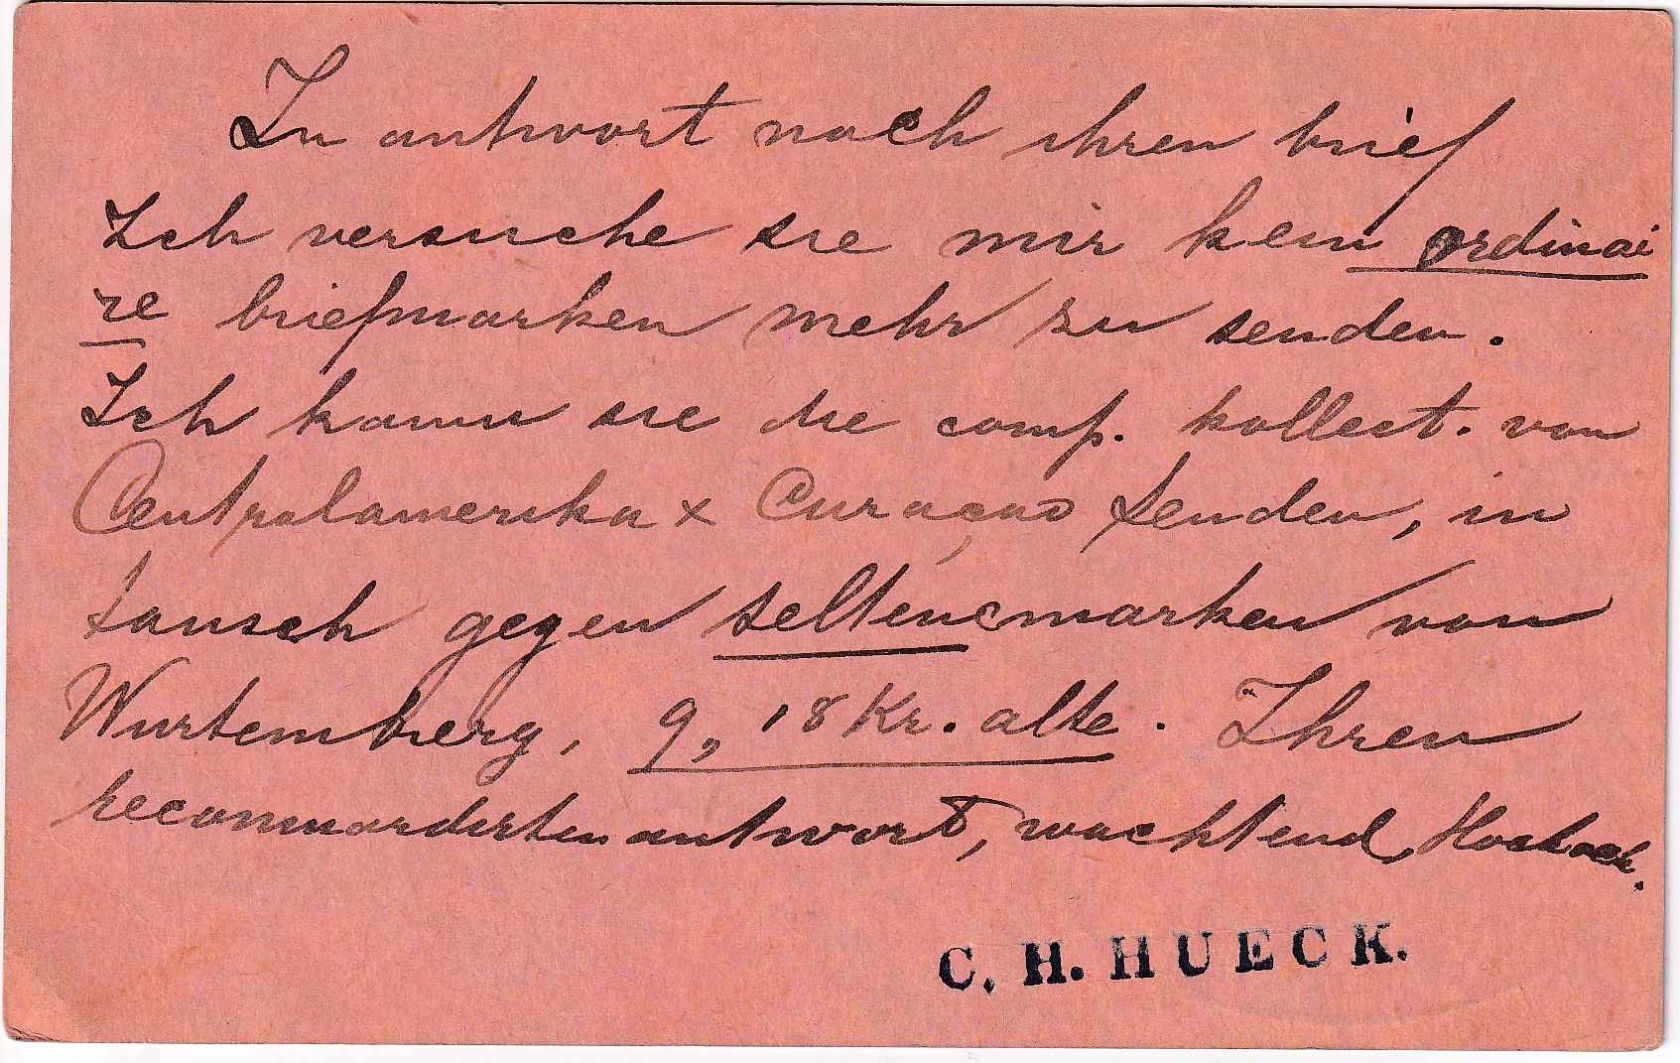 In antwort nach ihren brief
Ich versuche sie mir kein ordinai
re briefmarken mehr zu senden.
Ich kann sie die comp. kollect. von
Centralamerika x Curaçao senden, in
tausch gegen seltenemarken von
Wurtemberg, 9, 18 Kr. alte. Ihren
recommardirten antwort, wachtend,
C. H. HUECK.